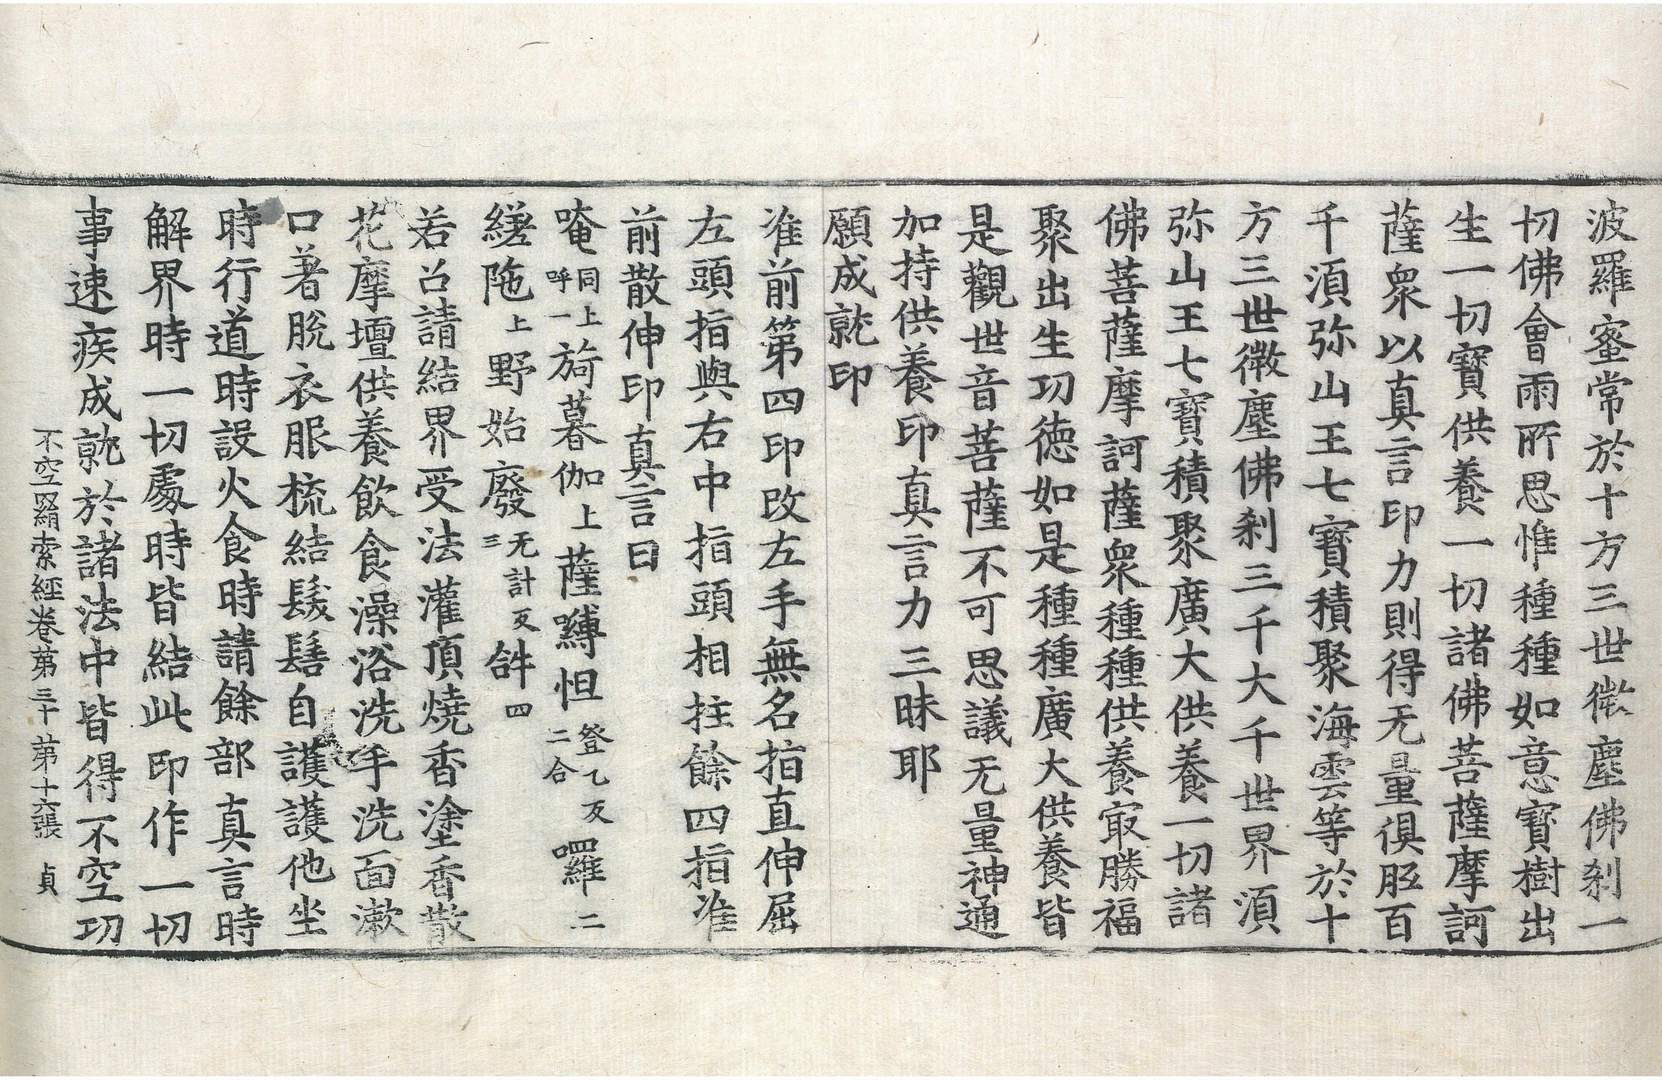 波羅蜜常於十方三世微塵佛剎一
切佛會雨所思惟種種如意寶樹出
生一切寶供養一切諸佛菩薩摩訶
薩衆以真言印力則得无量俱胝百
千湏弥山王七寶積聚海雲等於十
方三世微塵佛剎三千大千世界湏
弥山王七寶積聚廣大供養一切諸
佛菩薩摩訶薩衆種種供養㝡勝福
聚出生功德如是種種廣大供養皆
是觀世音菩薩不可思議无量神通
加持供養印真言力三昧耶
願成就印
准前第四印改左手無名指直伸屈
左頭指與右中指頭相拄餘四指准
前散伸印真言曰
唵同上呼一旖暮伽上薩嚩怛登乙反二合囉二
縒陁上野始廢无計反三𤙖四
若召請結界受法灌頂燒香塗香散
花摩壇供養飲食澡浴洗手洗面漱
口著脫衣服梳結鬀髻自護護他坐
時行道時設火食時請餘部真言時
解界時一切處時皆結此印作一切
事速疾成就於諸法中皆得不空功
不空羂索經卷第三十 第十六張 貞